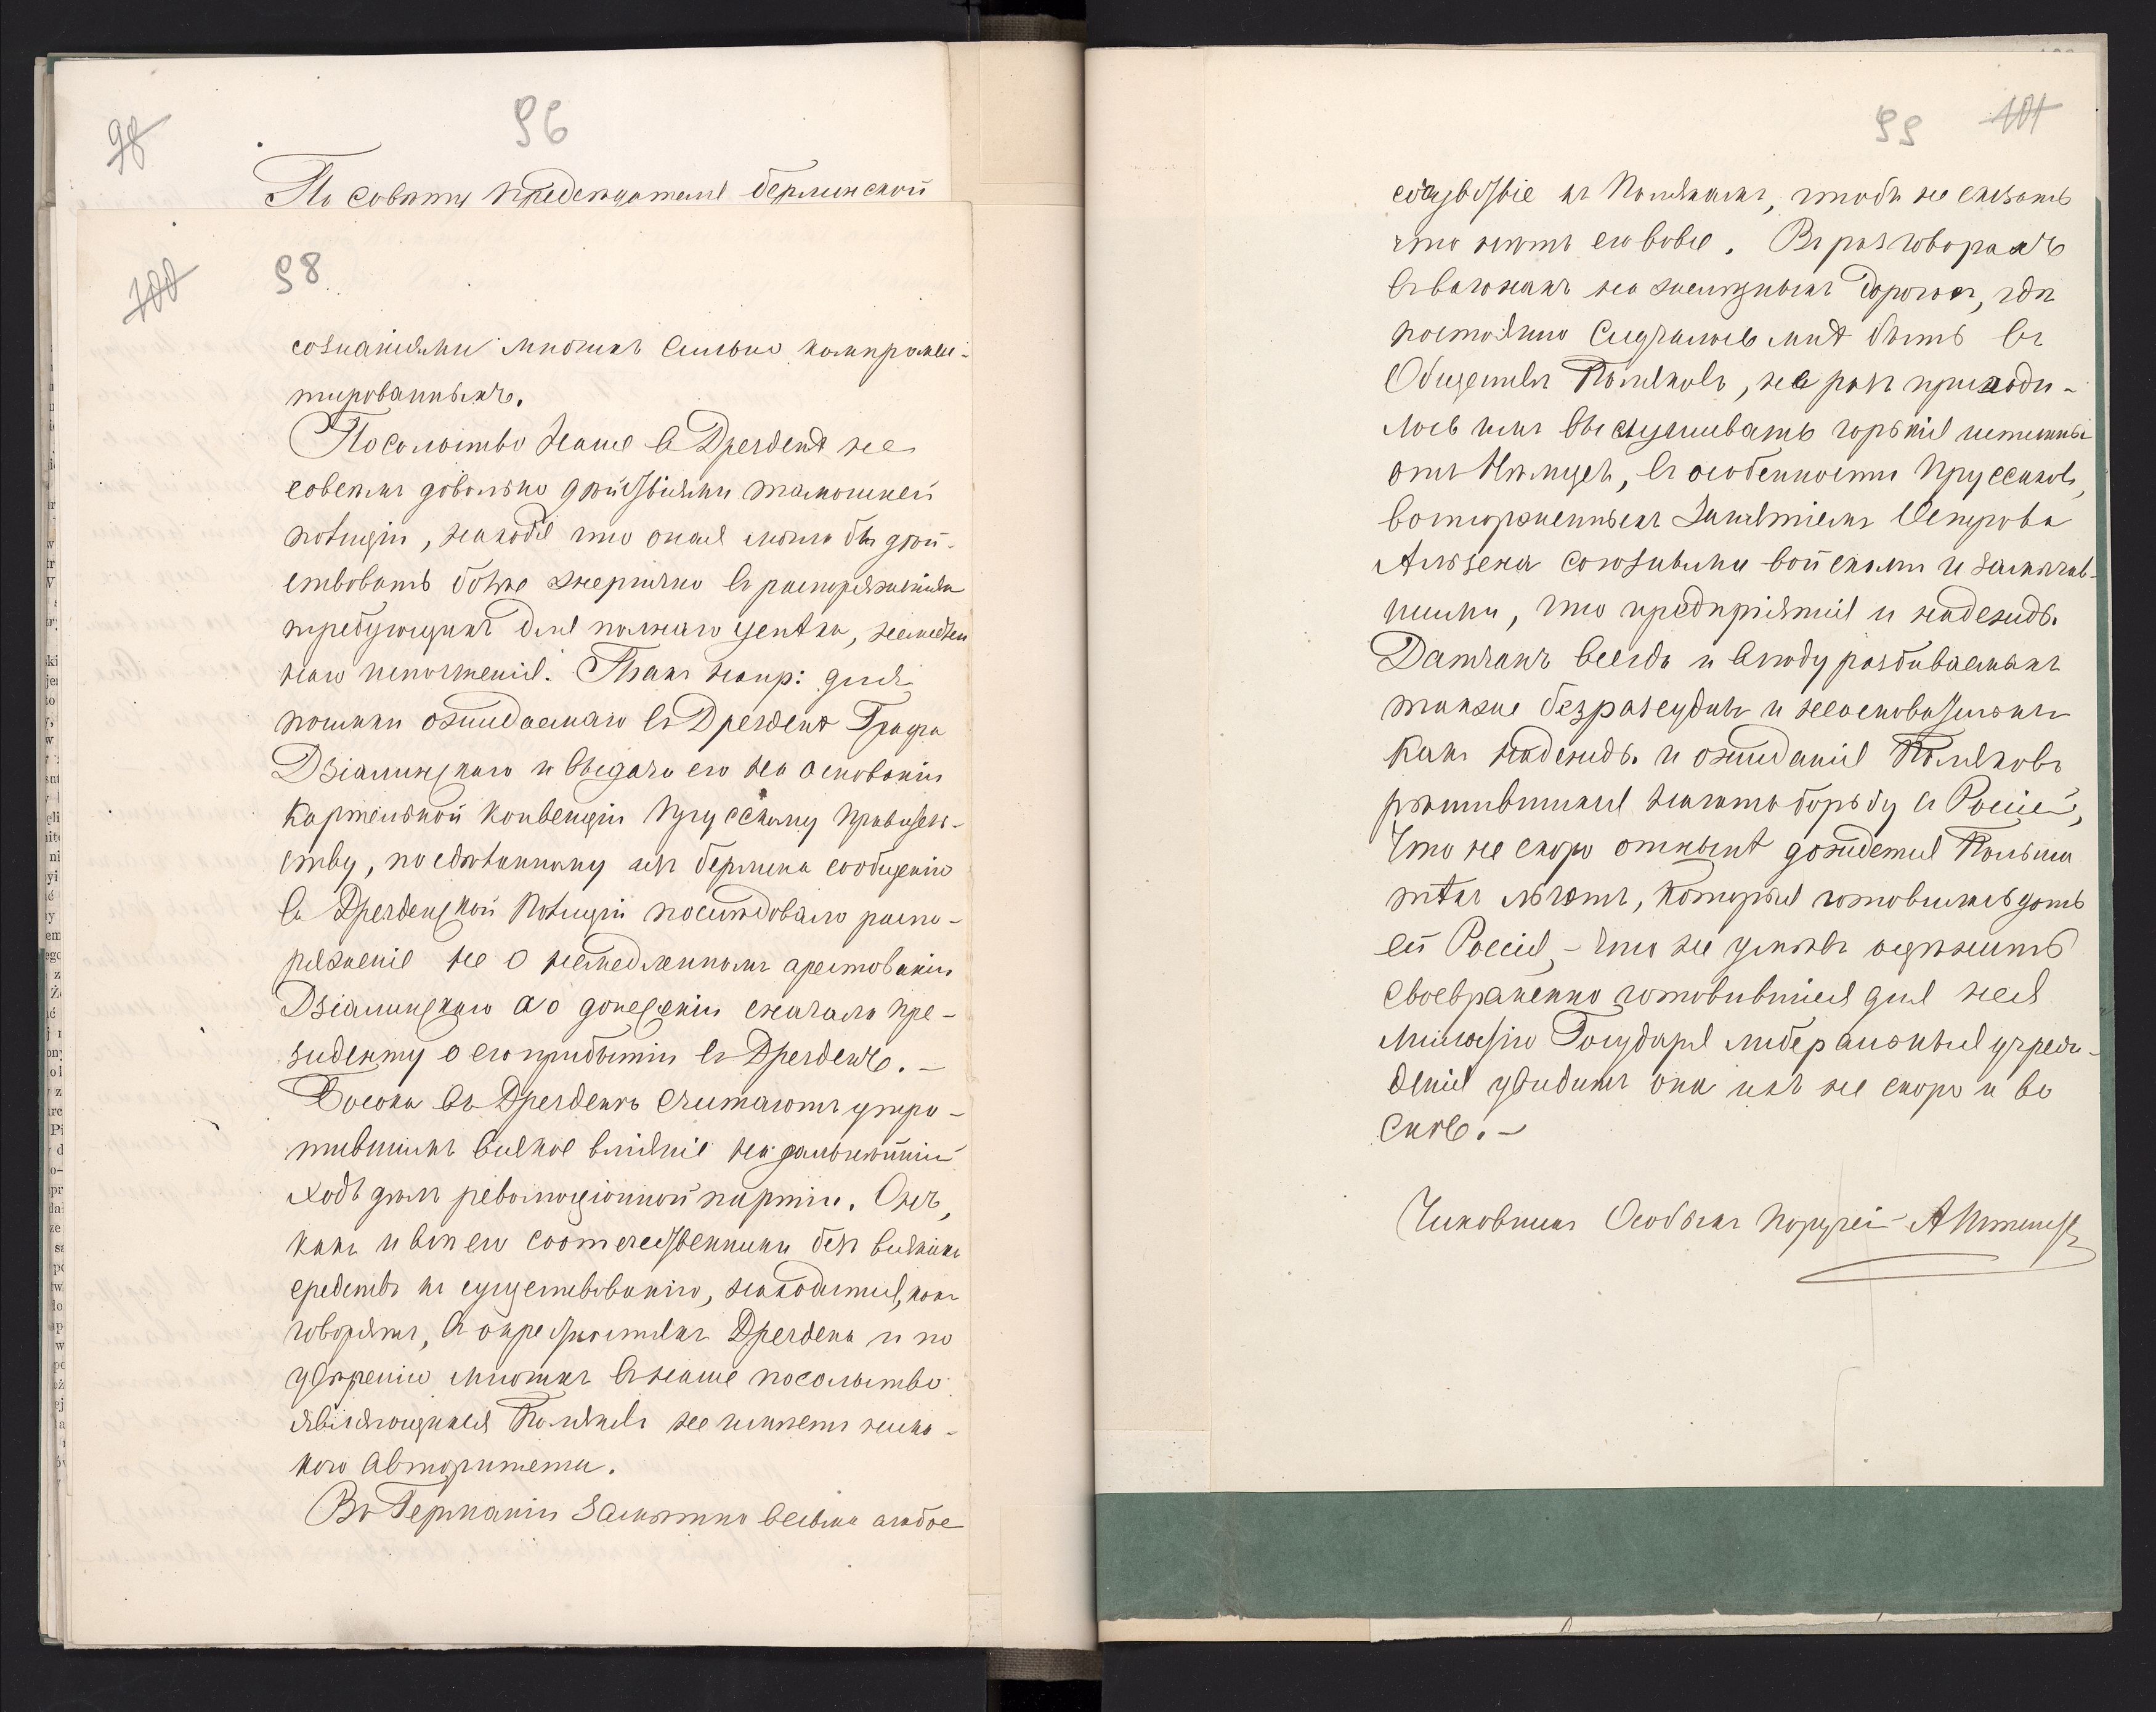 98
96
По совѣту предсѣдателя берлинской
100
98
сознаніями многихъ сильно компроме-
тированныхъ.
Посольство наше въ Дрезденѣ не
совсѣмъ довольно дѣйствіями тамошней
полиціи, находя что оная могла бы дѣй-
ствовать болѣе энергично въ распоряженіяхъ
требующихъ для полнаго успѣха, немедлен
наго исполненія. Такъ напр: для
поимки ожидаемаго въ Дрезденѣ Графа
Дзіалинскаго и выдачи его на основаніи
Картельной Конвенціи Прусскому Правитель-
ству, по сдѣланному изъ Берлина сообщенію
въ Дрезденской Полиціи послѣдовало распо-
ряженіе не о немедленномъ арестованіи
Дзіалинскаго а о донесеніи сначала пре-
зиденту о его прибытіи въ Дрезденъ. –
Босока въ Дрезденѣ считаютъ утра-
тившимъ всякое вліяніе на дальнѣйшій
ходъ дѣлъ революціонной партіи. Онъ,
какъ и всѣ его соотечественники безъ всякихъ
средствъ къ существованію, находится, какъ
говорятъ, въ окрестностяхъ Дрездена и по
увѣренію многихъ въ наше посольство
являющихся Поляковъ не имѣетъ ника-
кого авторитета.
Въ Германіи замѣтно весьма слабое
99 101
сочувствіе къ Полякамъ, чтобъ не сказать
что нѣтъ его вовсе. Въ разговорахъ
въ вагонахъ на желѣзныхъ дорогахъ, гдѣ
постоянно случалось мнѣ быть въ
Обществѣ Поляковъ, не разъ приходи-
лось имъ выслушивать горькія истины
отъ Нѣмцевъ, въ особенности Пруссаковъ,
восторженныхъ Занятіемъ Острова
Альзена союзными войсками и замѣчав-
шими, что предпріятія и надежды
Датчанъ всегда и всюду разбиваемыхъ
также безразсудны и неосновательны
какъ надежды и ожиданія Поляковъ
рѣшившихся начать борьбу съ Россіей,
Что не скоро отнынѣ дождется Польша
тѣхъ льготъ, которыя готовилась дать
ей Россія, – что не умѣвъ оцѣнить
своевременно готовившіяся для нея
Милостію Государя либеральныя учреж-
денія увидитъ она ихъ не скоро и во
снѣ. –
Чиновникъ Особыхъ Поручен